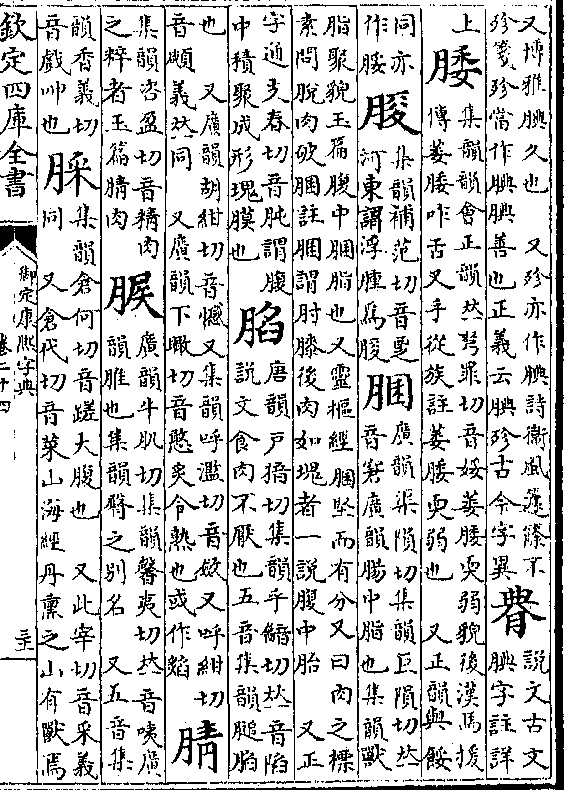 又博雅腆久也　又殄亦作腆詩衛風籧篨不
殄箋殄當作腆腆善也正義云腆殄古今字異
說文古文
腆字註詳
上
腇
集韻韻會正韻𠀤弩罪切音餒萎腇耎弱貌後漢馬援
傳萎腇咋舌又手從族註萎腇耎弱也　又正韻與餒
同亦
作脮
集韻補范切音
河東謂浮腫爲
䐃
廣韻渠隕切集韻巨隕切𠀤
音窘廣韻腸中脂也集韻獸
脂聚貌玉篇腹中䐃脂也又靈樞經䐃堅而有分又曰肉之標
素問脫肉破䐃註䐃謂肘膝後肉如塊者一說腹中胎　又正
字通支春切音肫謂腹
中積聚成形塊膜也
䐄
唐韻戸㨂切集韻乎韽切𠀤音陷
說文食肉不厭也五音集韻膇䐄
也　又廣韻胡紺切音憾又集韻呼濫切音㰹又呼紺切
音顑義𠀤同　又廣韻下瞰切音憨炙令熟也或作䭑
腈
集韻咨盈切音精肉
之粹者玉篇腈肉
䐅
廣韻斗肌切集韻馨夷切𠀤音咦廣
韻脽也集韻臀之別名　又五音集
韻香義切
音戲呬也
䐆
集韻倉何切音蹉大腹也　又此宰切音采義
同　又倉代切音菜山海經丹熏之山有獸焉
欽定四庫全書
御定康熙字典
卷二十四